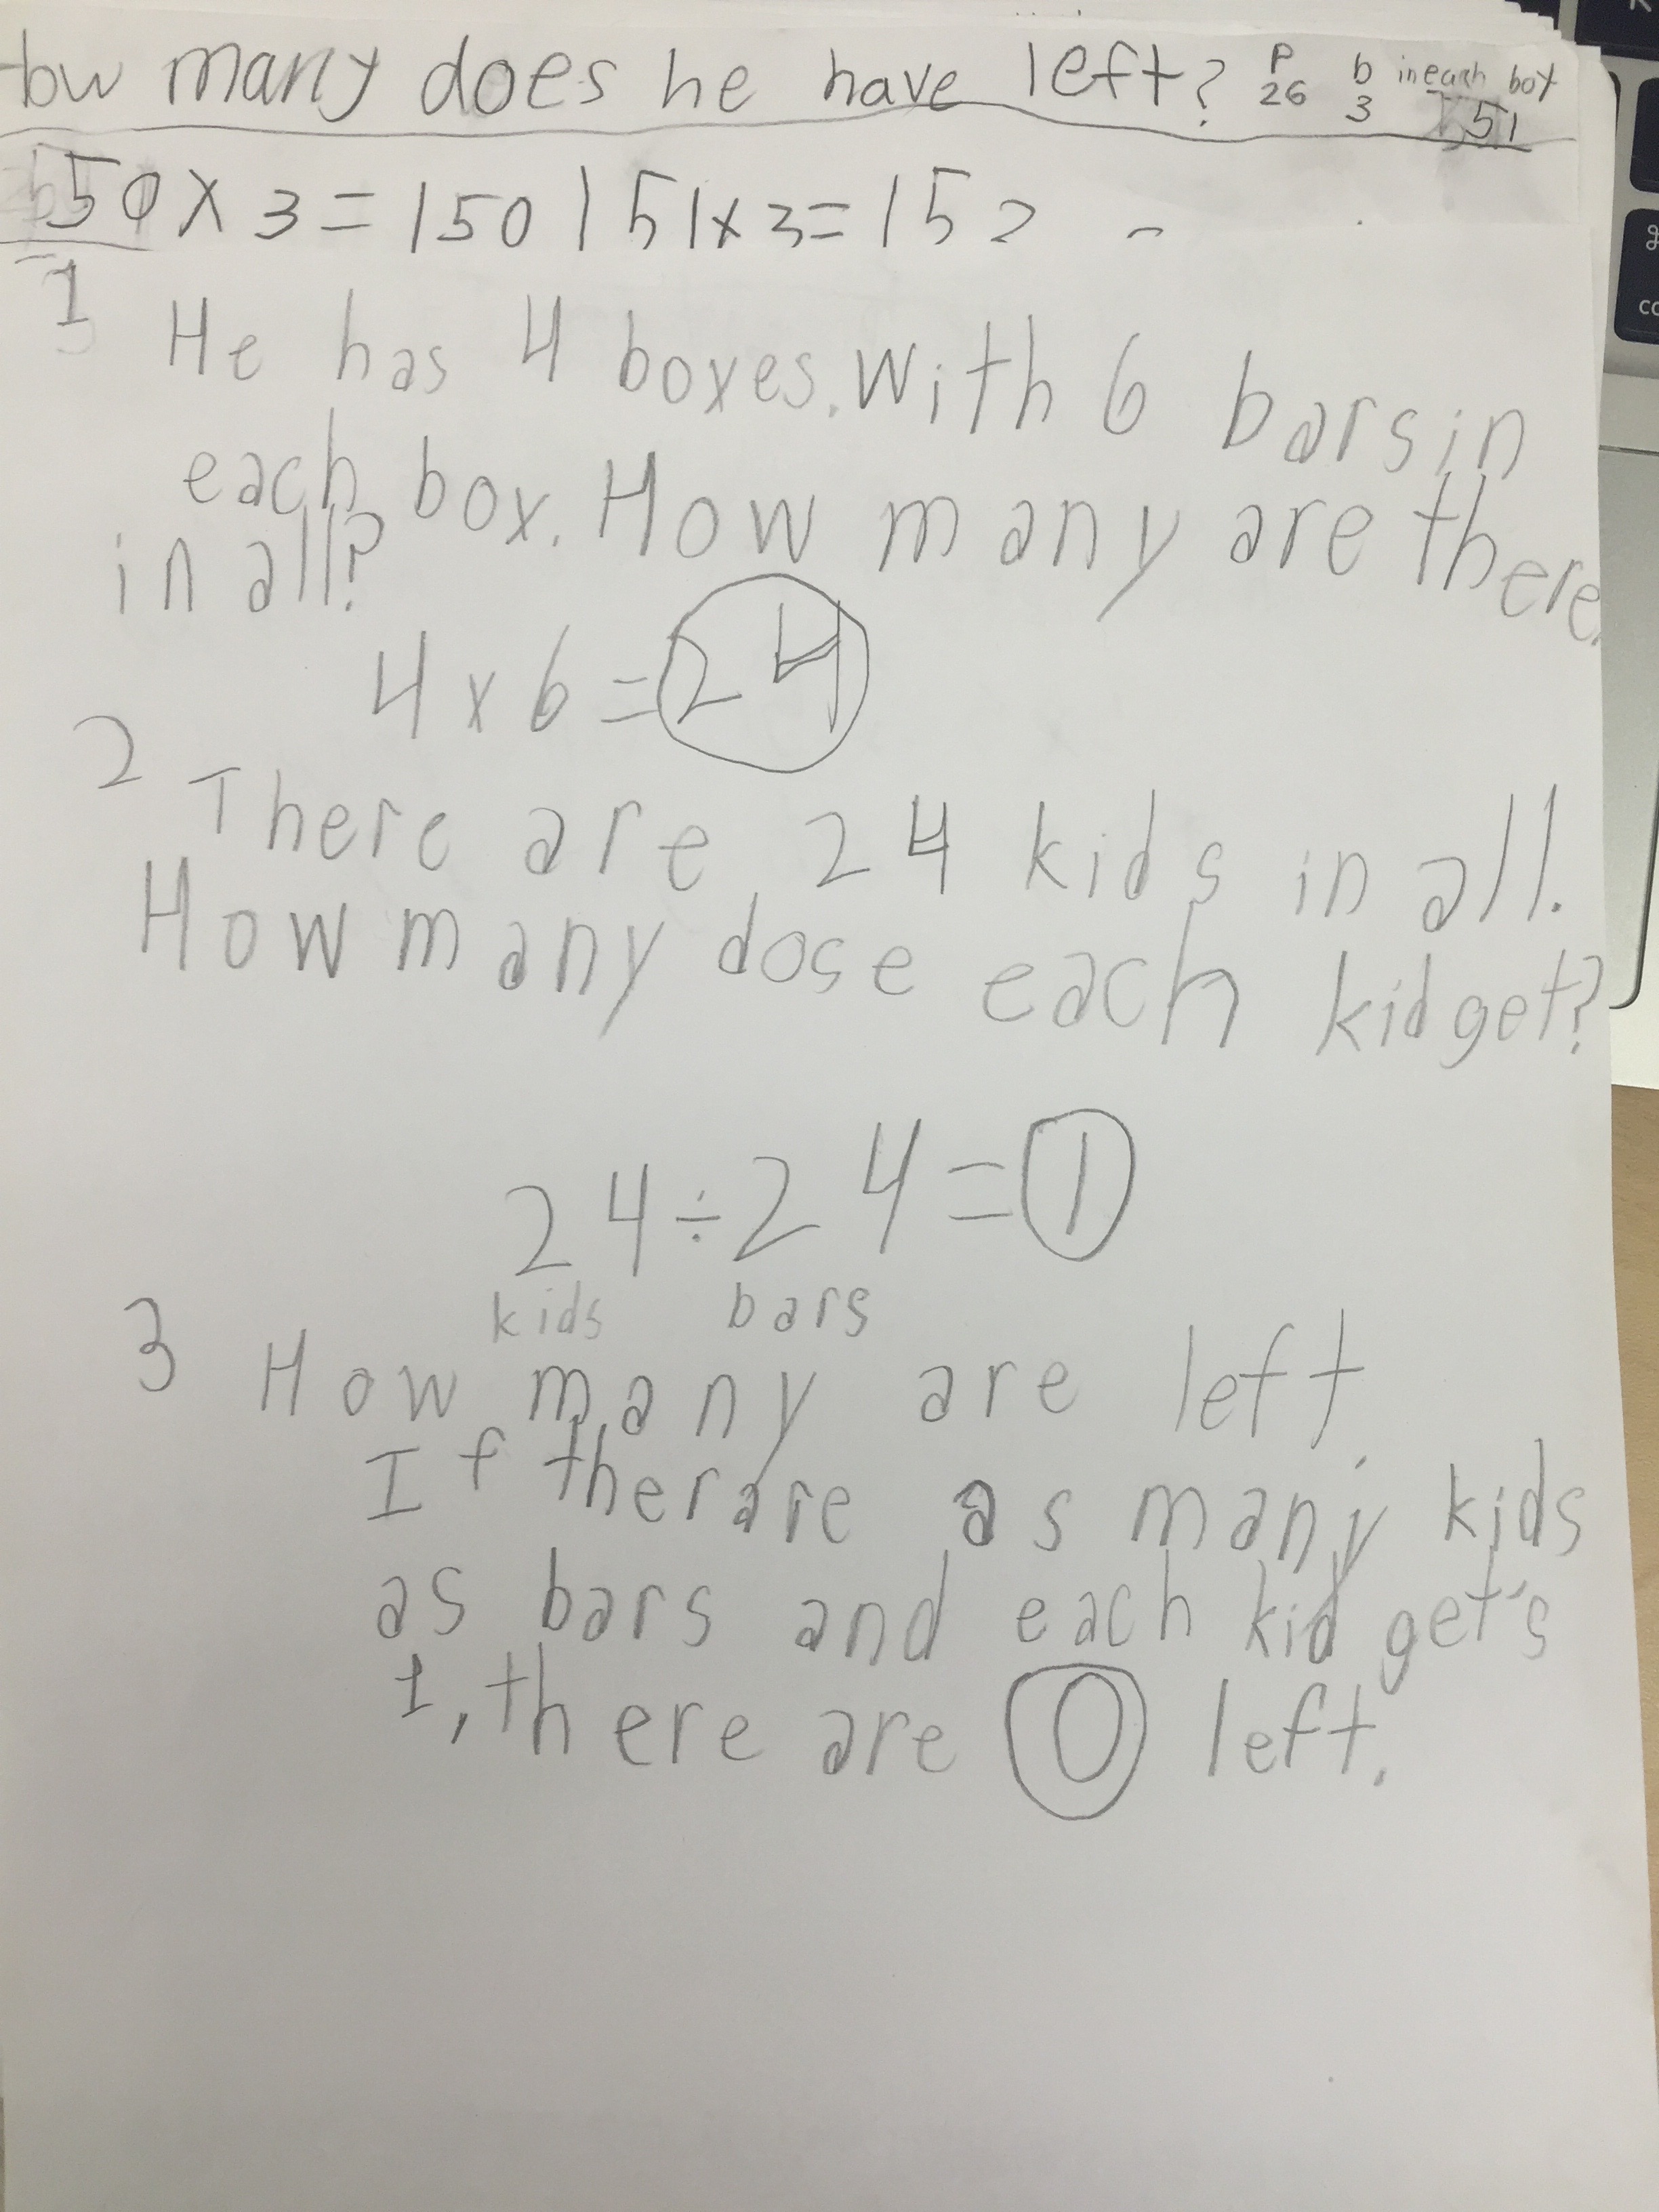 How many does he have left? P b in each box
26 3 51
50 x 3 = 150 | 51 x 3 = 152 -
1 He has 4 boxes. With 6 bars in
each box. How many are there
in all?
4 x 6 = 24
2 There are 24 kids in all.
How many dose each kid get?
24 ÷ 24 = 1
kids bars
3 How many are left.
If therare as many kids
as bars and each kid get's
1, there are 0 left.